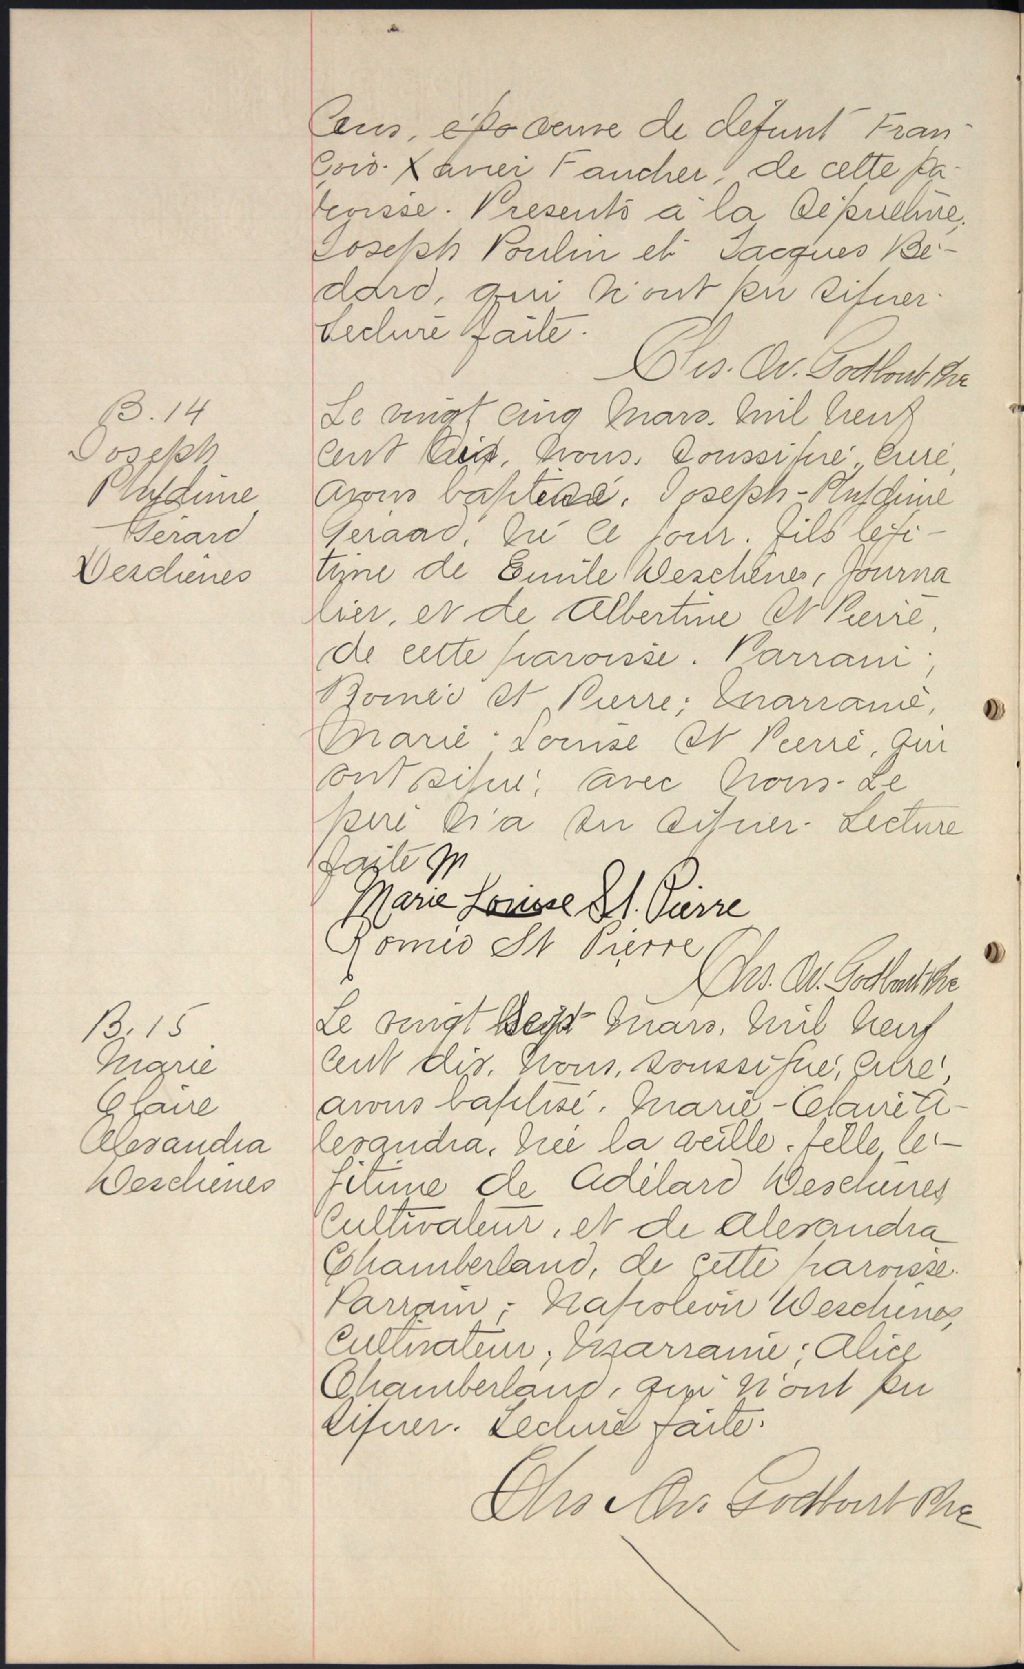 Cens, épo veuve de défunt Fran-
çois-Xavier Faucher, de cette pa-
roisse. Présents à la sépulture,
Joseph Poulin et Jacques Bé-
dard, qui n'ont pu signer.
Lecture faite.
Chs. Av. Godbout Ptre
B. 14
Joseph
Phydime
Gérard
Deschènes
Le vingt cinq Mars, mil neuf
cent dix, nous, soussigné, curé,
avons baptisé, Joseph-Phydime
Gérard, né ce jour, fils légi-
time de Emile Deschènes, journa
lier, et de Albertine St Pierre,
de cette paroisse. Parrain;
Roméo St Pierre; Marraine,
Marie-Louise St Pierre, qui
ont signé, avec nous. Le
père n'a su signer. Lecture
faite
Marie Louise St. Pierre
Roméo St Pierre
Chs. Av. Godbout Ptre
B. 15
Marie
Claire
Alexandra
Deschènes
Le vingt sept Mars, mil neuf
cent dix, nous, soussigné, curé,
avons baptisé, Marie-Claire A-
lexandra, née la veille, fille, lé-
gitime de Adélard Deschènes,
cultivateur, et de Alexandra
Chamberland, de cette paroisse.
Parrain; Napoléon Deschènes,
cultivateur; Marraine; Alice
Chamberland, qui n'ont pu
signer. Lecture faite.
Chs. Av. Godbout Ptre